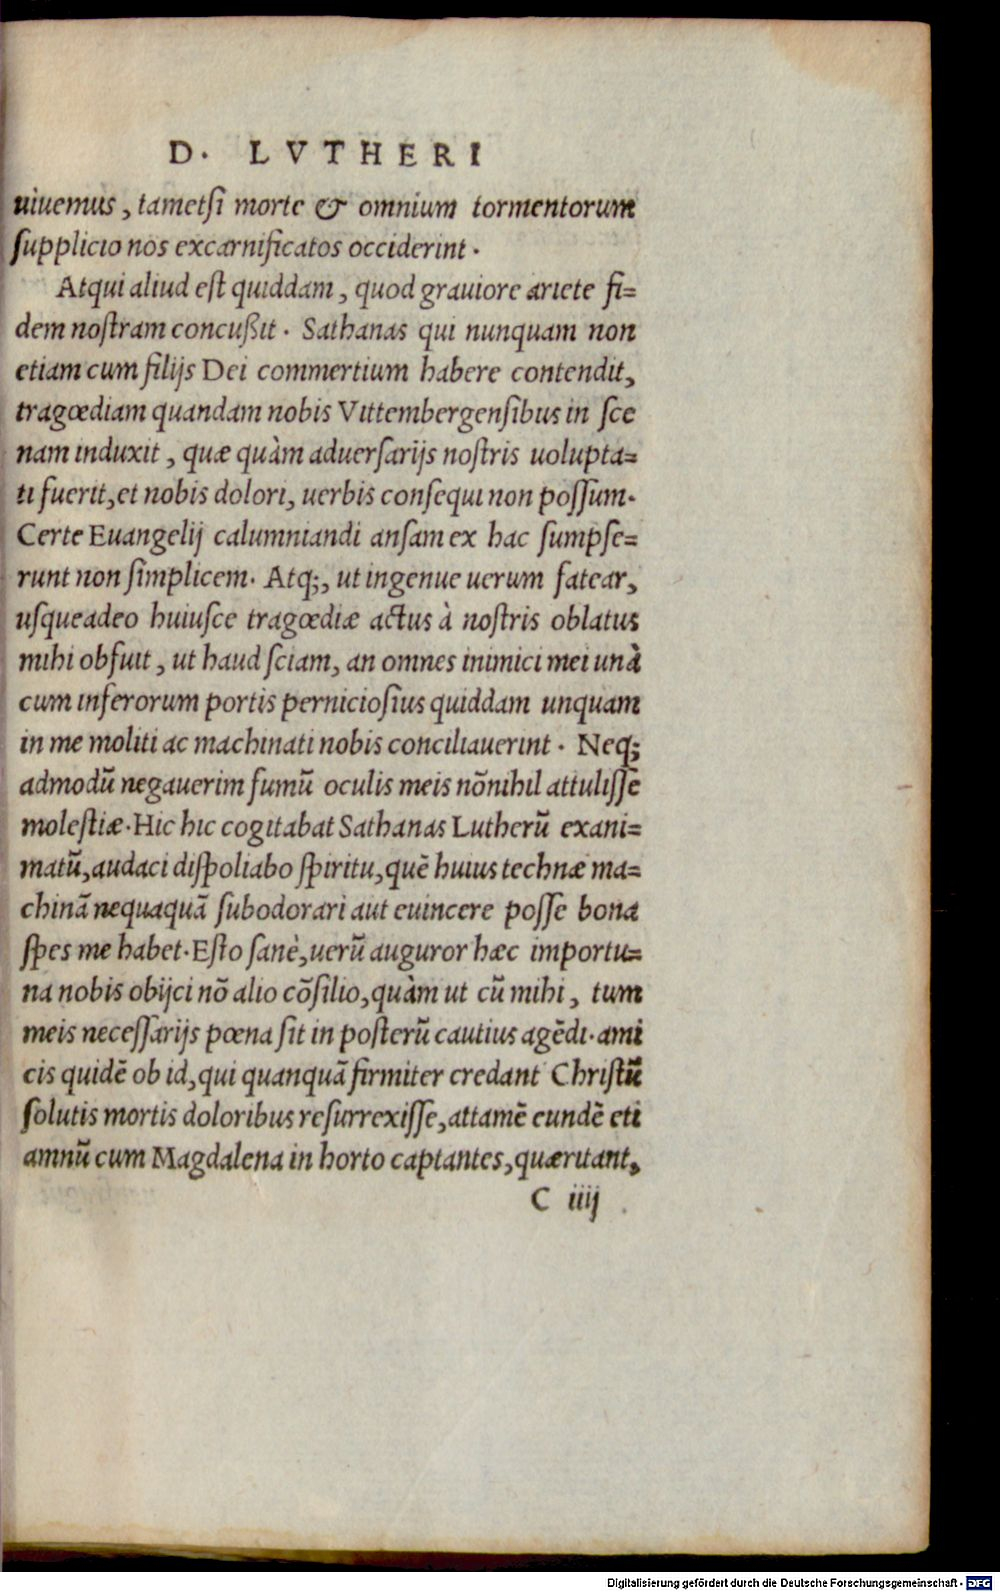 D. LVTHERI
uiuemus, tametſi morte & omnium tormentorum
ſupplicio nos excarnificatos occiderint.
Atqui aliud eſt quiddam, quod grauiore ariete fi=
dem noſtram concußit. Sathanas qui nunquam non
etiam cum filijs Dei commertium habere contendit,
tragœdiam quandam nobis Vittembergenſibus in ſce
nam induxit, quæ quàm aduerſarijs noſtris uolupta=
ti fuerit, et nobis dolori, uerbis conſequi non poſſum.
Certe Euangelij calumniandi anſam ex hac ſumpſe=
runt non ſimplicem. Atq;, ut ingenue uerum fatear,
uſqueadeo huiuſce tragœdiæ actus à noſtris oblatus
mihi obfuit, ut haud ſciam, an omnes inimici mei unà
cum inferorum portis pernicioſius quiddam unquam
in me moliti ac machinati nobis conciliauerint. Neq;
admodū negauerim fumū oculis meis nōnihil attuliſſe
moleſtiæ. Hic hic cogitabat Sathanas Lutherū exani=
matū, audaci diſpoliabo ſpiritu, quē huius technæ ma=
chinā nequaquā ſubodorari aut euincere poſſe bona
ſpes me habet. Eſto ſanè, uerū auguror hæc importu=
na nobis obijci nō alio cōſilio, quàm ut cū mihi, tum
meis neceſſarijs pœna ſit in poſterū cautius agēdi. ami
cis quidē ob id, qui quanquā firmiter credant Chriſtū
ſolutis mortis doloribus reſurrexiſſe, attamē eundē eti
amnū cum Magdalena in horto captantes, quæritant,
C iiij
Digitalisierung gefördert durch die Deutsche Forschungsgemeinschaft - DFG